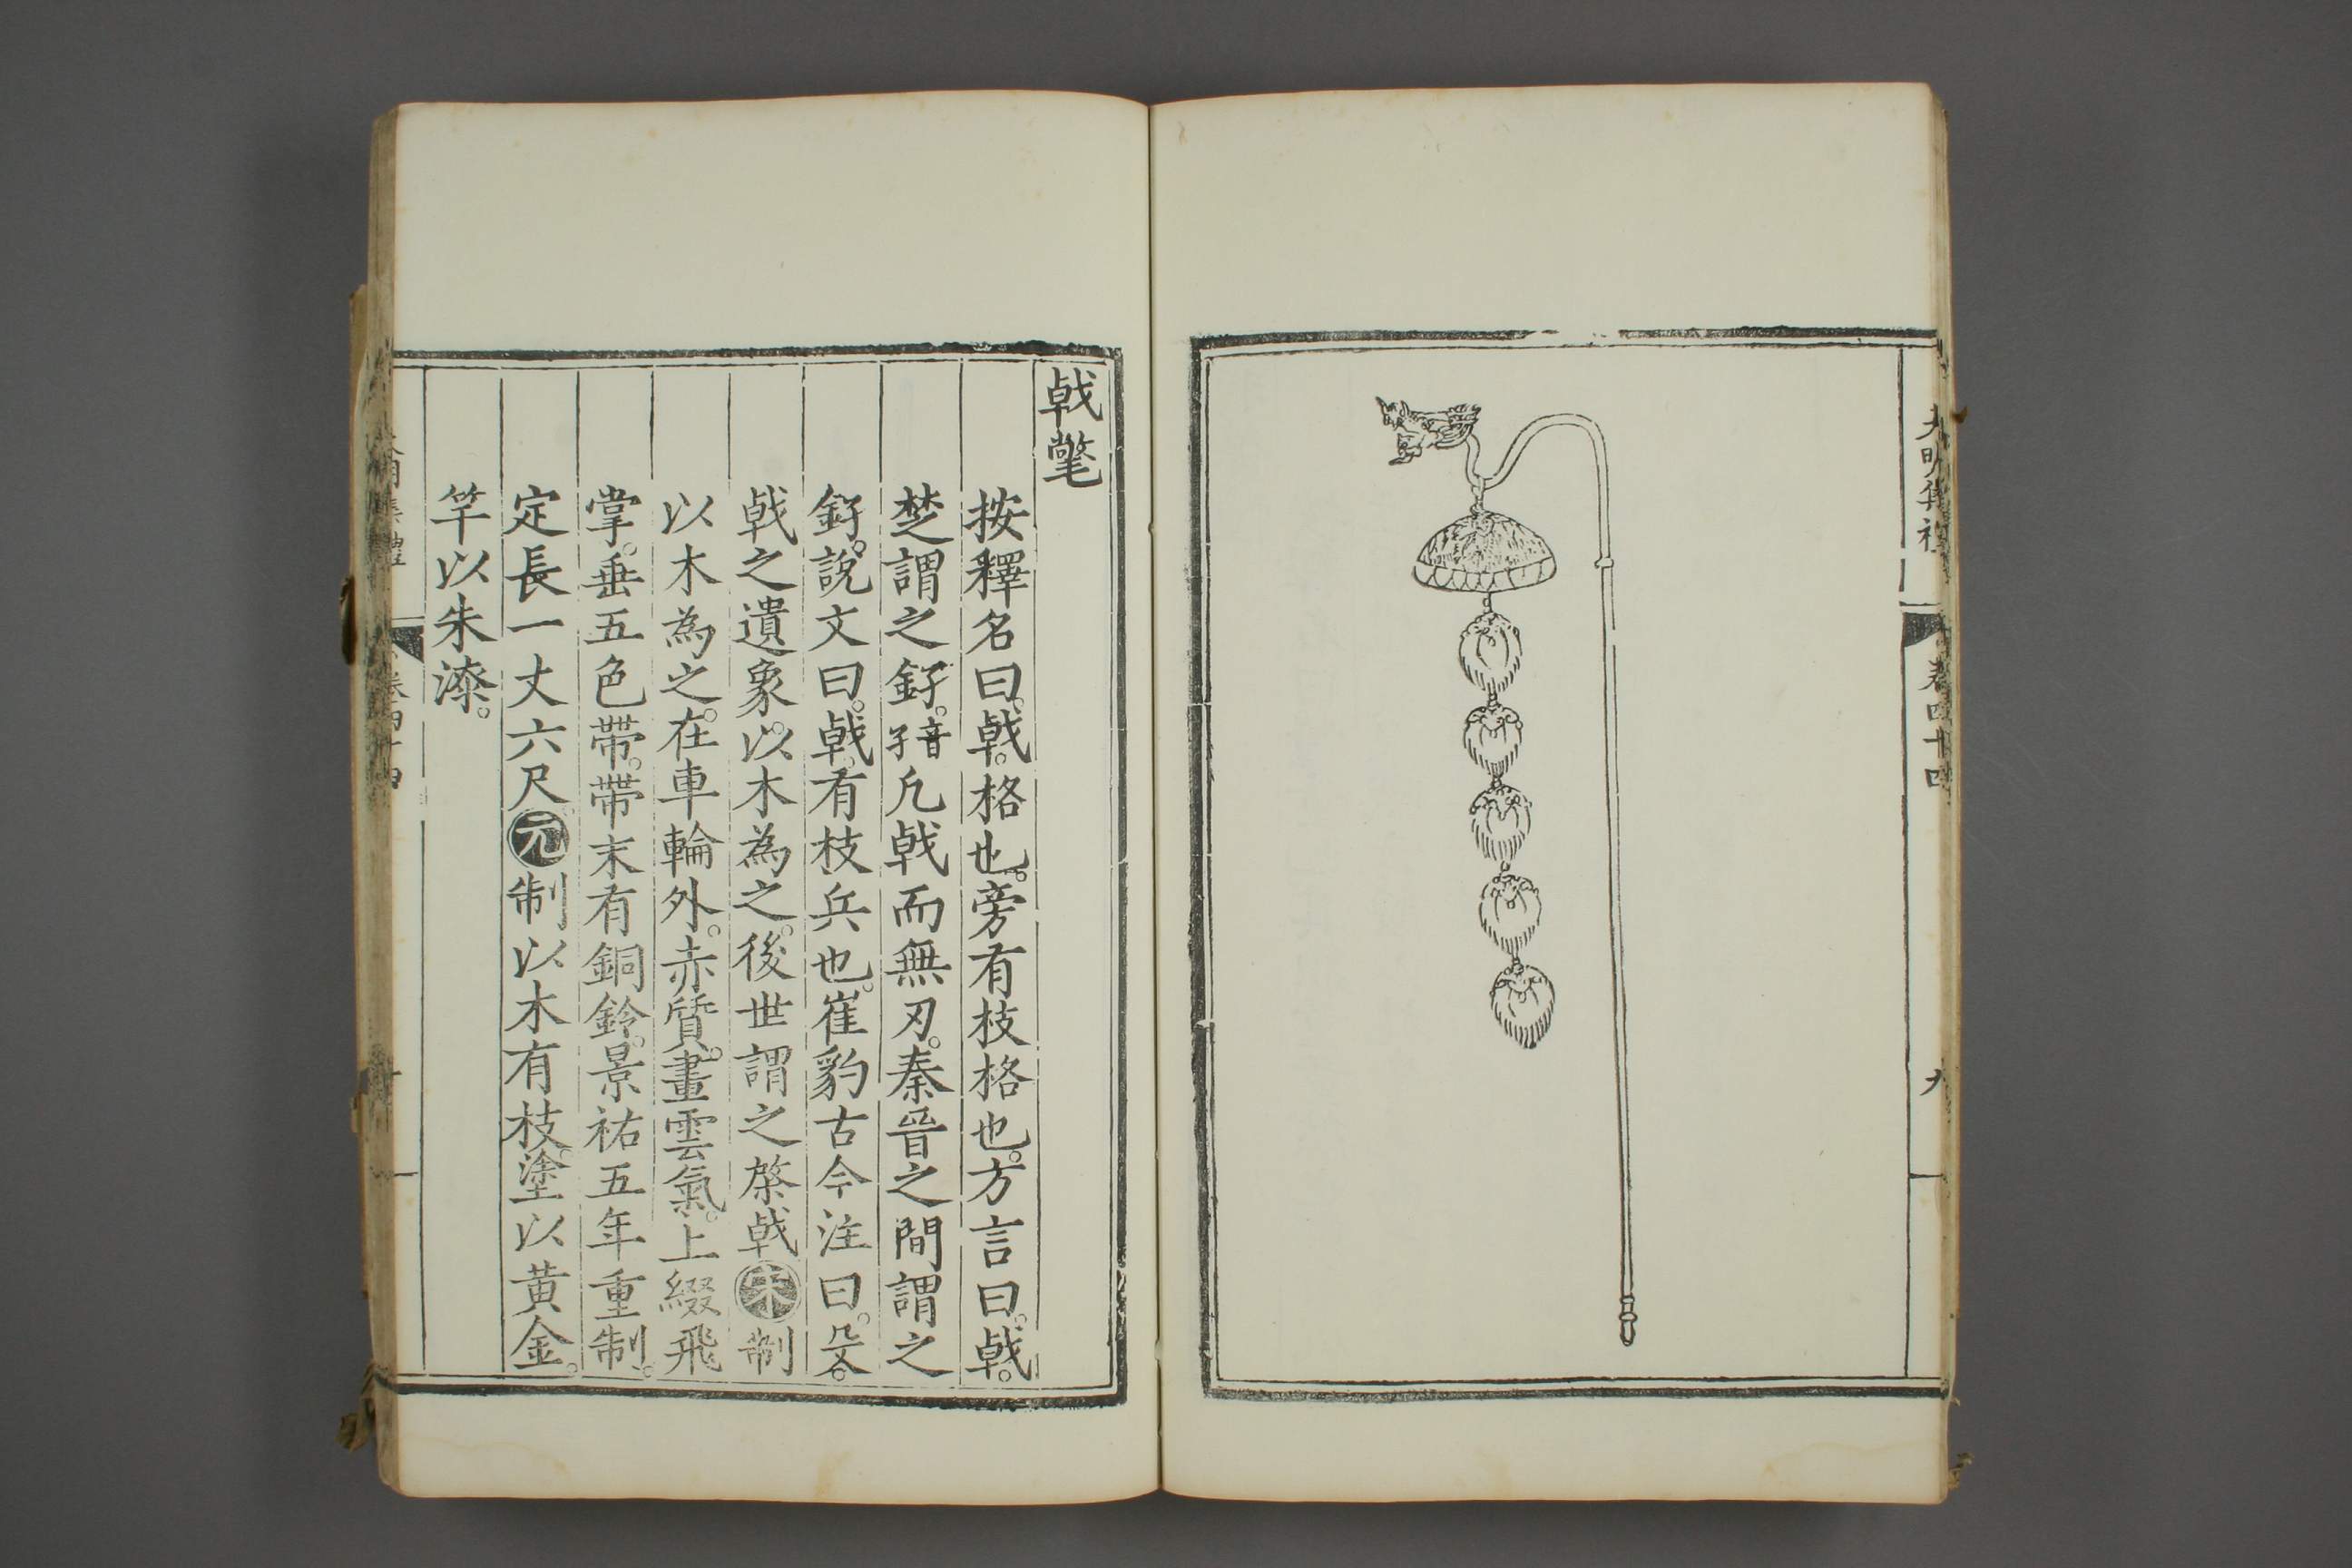 大明集禮
卷四十四
九
戟氅
按釋名曰。戟。格也。旁有枝格也。方言曰。戟。
楚謂之釨。音孑凡戟而無刃。秦晉之間謂之
釨。說文曰。戟。有枝兵也。崔豹古今注曰。殳。
戟之遺象。以木為之。後世謂之棨戟宋制
以木為之。在車輪外。赤質。畫雲氣。上綴飛
掌。垂五色帶。帶末有銅鈴。景祐五年重制。
定長一丈六尺元制以木有枝。塗以黃金。
竿以朱漆。
卷四十四